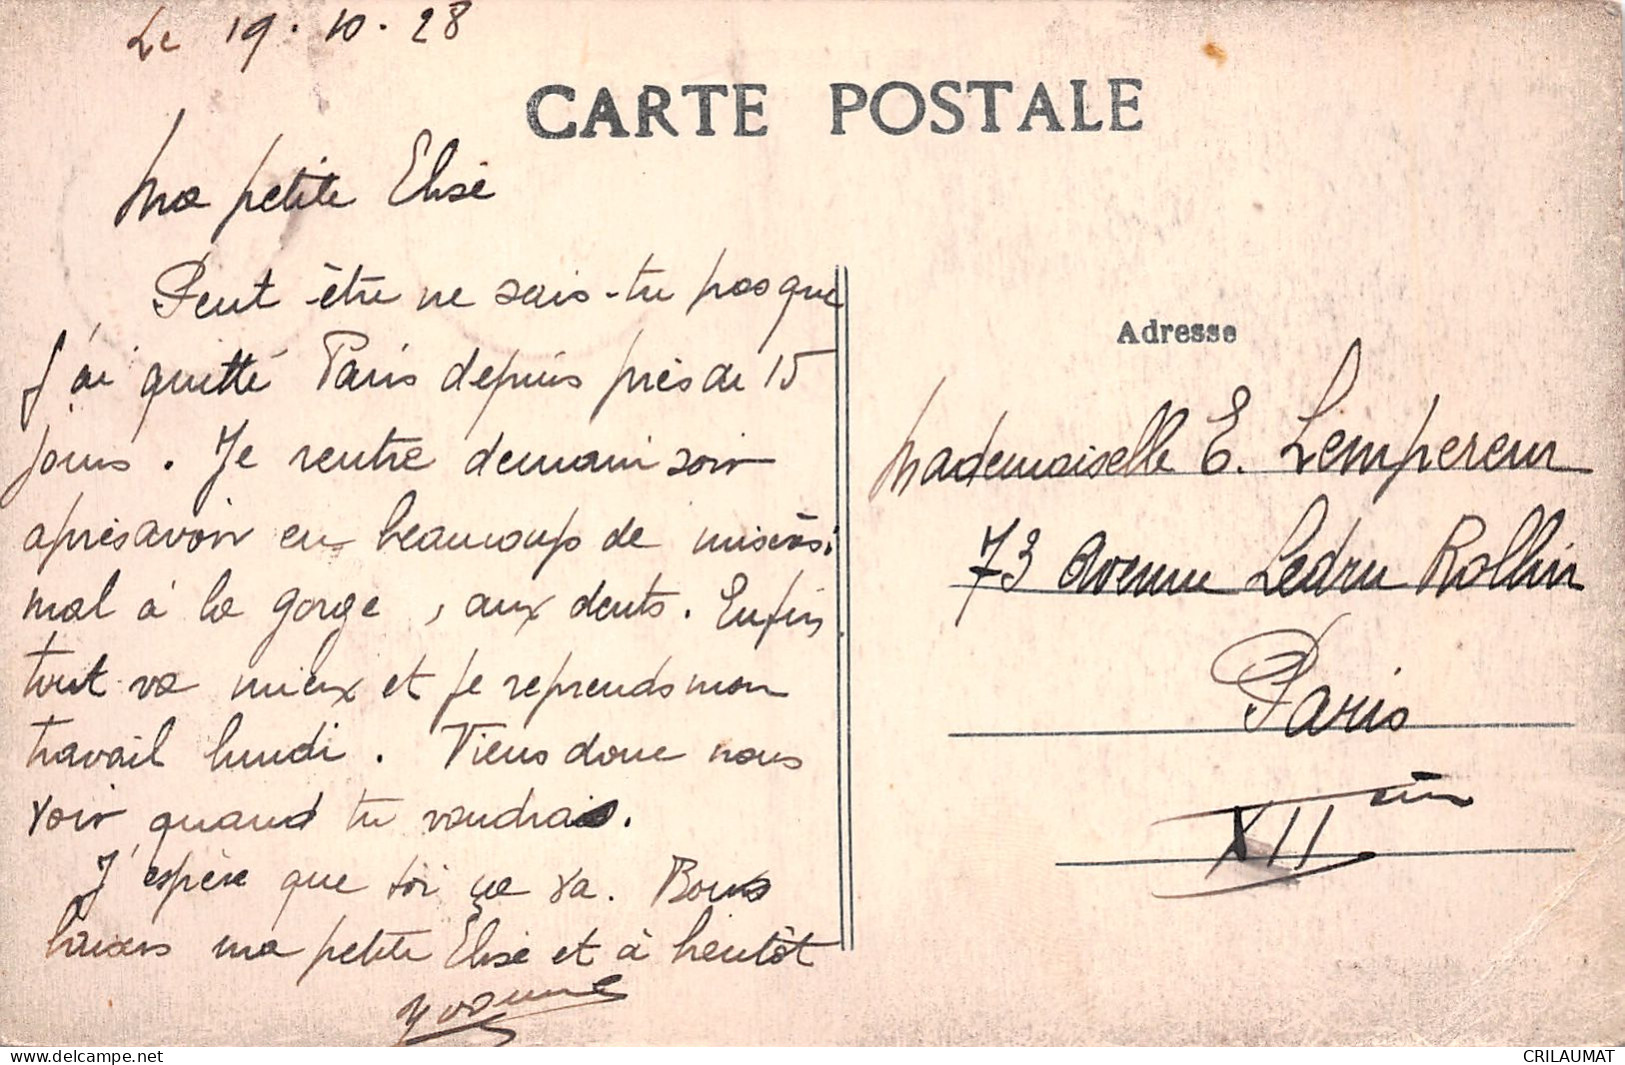 Le 19.10.28
CARTE POSTALE
Ma petite Elise
Peut-être ne sais-tu pas que
j'ai quitté Paris depuis près de 15
jours. Je rentre demain soir
après avoir eu beaucoup de misères :
mal à la gorge, aux dents. Enfin
tout va mieux et je reprends mon
travail lundi. Viens donc nous
voir quand tu voudras.
J'espère que toi ça va. Bons
baisers ma petite Elise et à bientôt
Yvonne
Adresse
Mademoiselle E. Lempereur
73 Avenue Ledru Rollin
Paris
XII ème
www.delcampe.net
CRILAUMAT